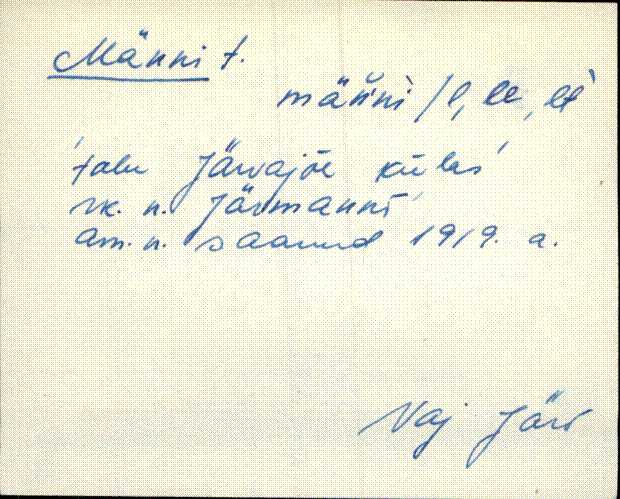 Männi t.
männi /l, le, lt
talu Järvajõe külas
rk. n. Järmanni
am. n. saanud 1919. a.
Vaj Järv